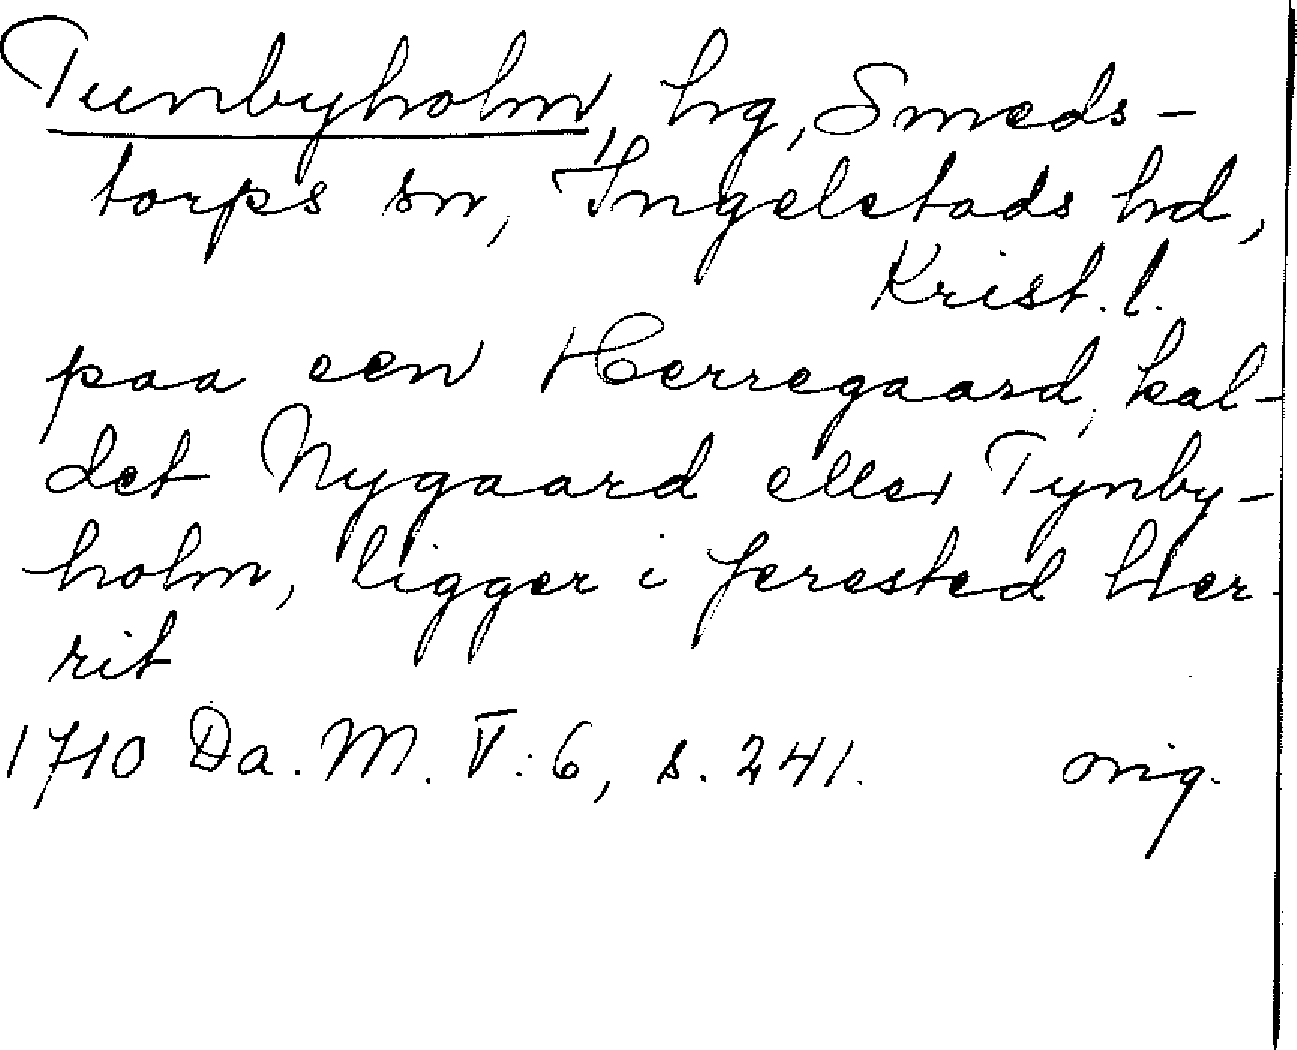 Tunbyholm, hg, Smeds-
torps sn, Ingelstads hd,
Krist. l.
paa een Herregaard, kal-
det Nygaard eller Tynby-
holm, ligger i ferested Her-
rit
1710 Da. M. V: 6, s. 241. orig.